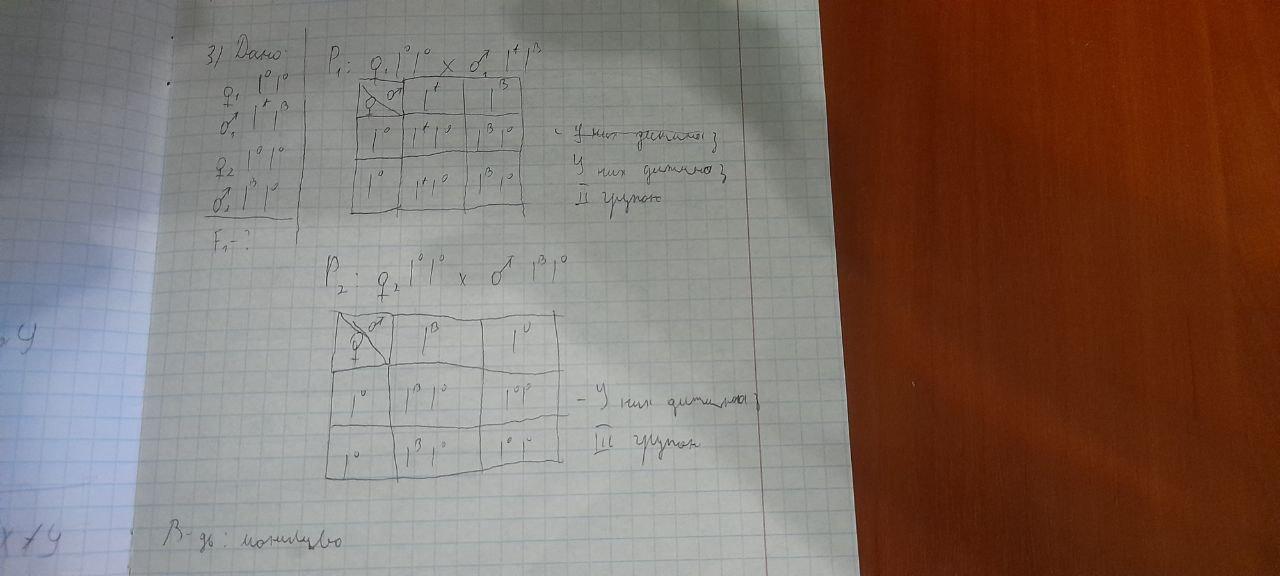 3) Дано:
♀₁ I⁰I⁰
♂₁ IᴬIᴮ
♀₂ I⁰I⁰
♂₂ IᴮI⁰
F₁-?
P₁: ♀₁ I⁰I⁰ x ♂₁ IᴬIᴮ
♀ ♂ Iᴬ Iᴮ
I⁰ IᴬI⁰ IᴮI⁰
I⁰ IᴬI⁰ IᴮI⁰
- У них дитина з
У них дитина з
II групою
P₂: ♀₂ I⁰I⁰ x ♂ IᴮI⁰
♀ ♂ Iᴮ I⁰
I⁰ IᴮI⁰ I⁰I⁰
I⁰ IᴮI⁰ I⁰I⁰
- У них дитина з
III групою
В-дь: можливо
У
X ≠ У